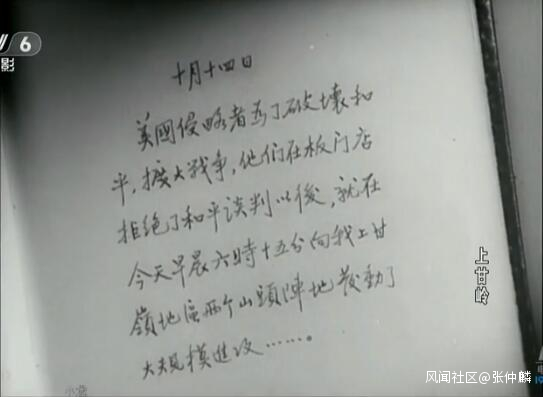 6
影
十月十四日
美國侵略者为了破壞和
平,擴大战争,他们在板门店
拒绝了和平谈判以後,就在
今天早晨六時十五分向我上甘
嶺地區两个山頭陣地發動了
大规模進攻……。
上甘岭
风闻社区@张仲麟